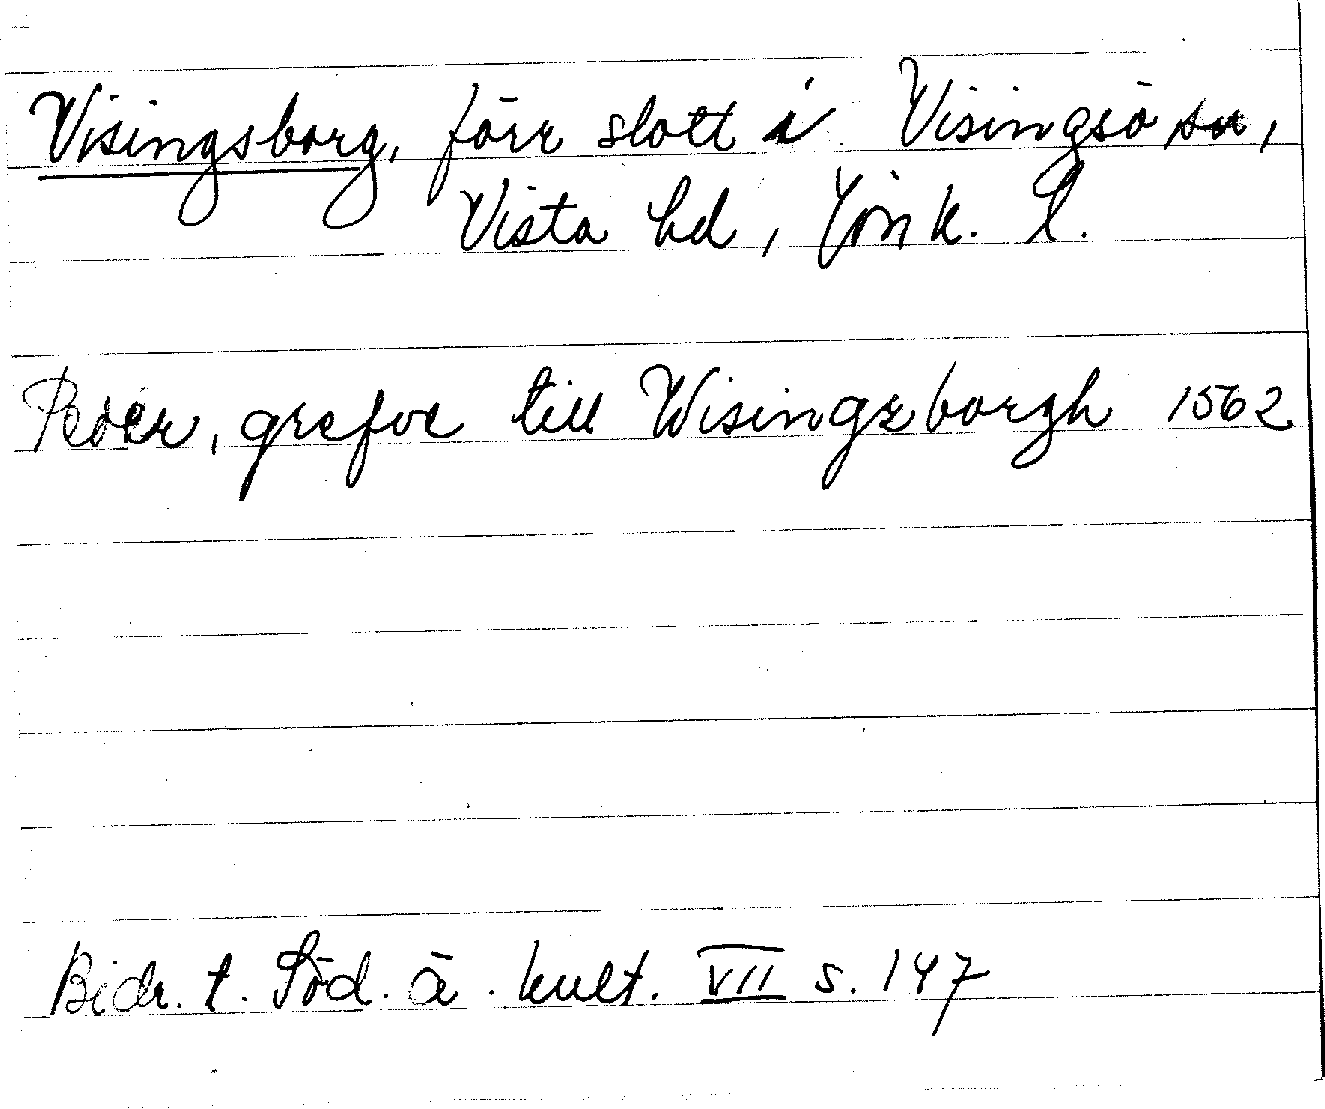 Visingsborg, förr slott i Visingsö sn,
Vista hd, Jönk. l.
Peder, grefve till Wisingzborgh 1562
Bidr. t. Söd. ä. kult. VII s. 147